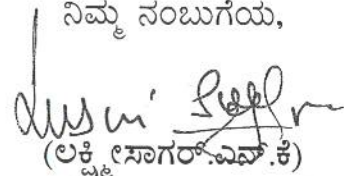 ನಿಮ್ಮ ನಂಬುಗೆಯ,
(ಲಕ್ಷ್ಮೀಸಾಗರ್.ಎನ್.ಕೆ)